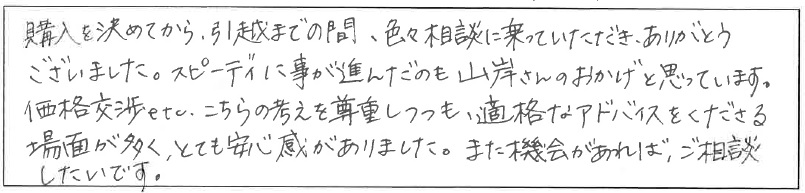 購入を決めてから、引越までの間、色々相談に乗っていただき、ありがとう
ございました。スピーディに事が進んだのも山岸さんのおかげと思っています。
価格交渉etc、こちらの考えを尊重しつつも、適格なアドバイスをくださる
場面が多く、とても安心感がありました。また機会があれば、ご相談
したいです。